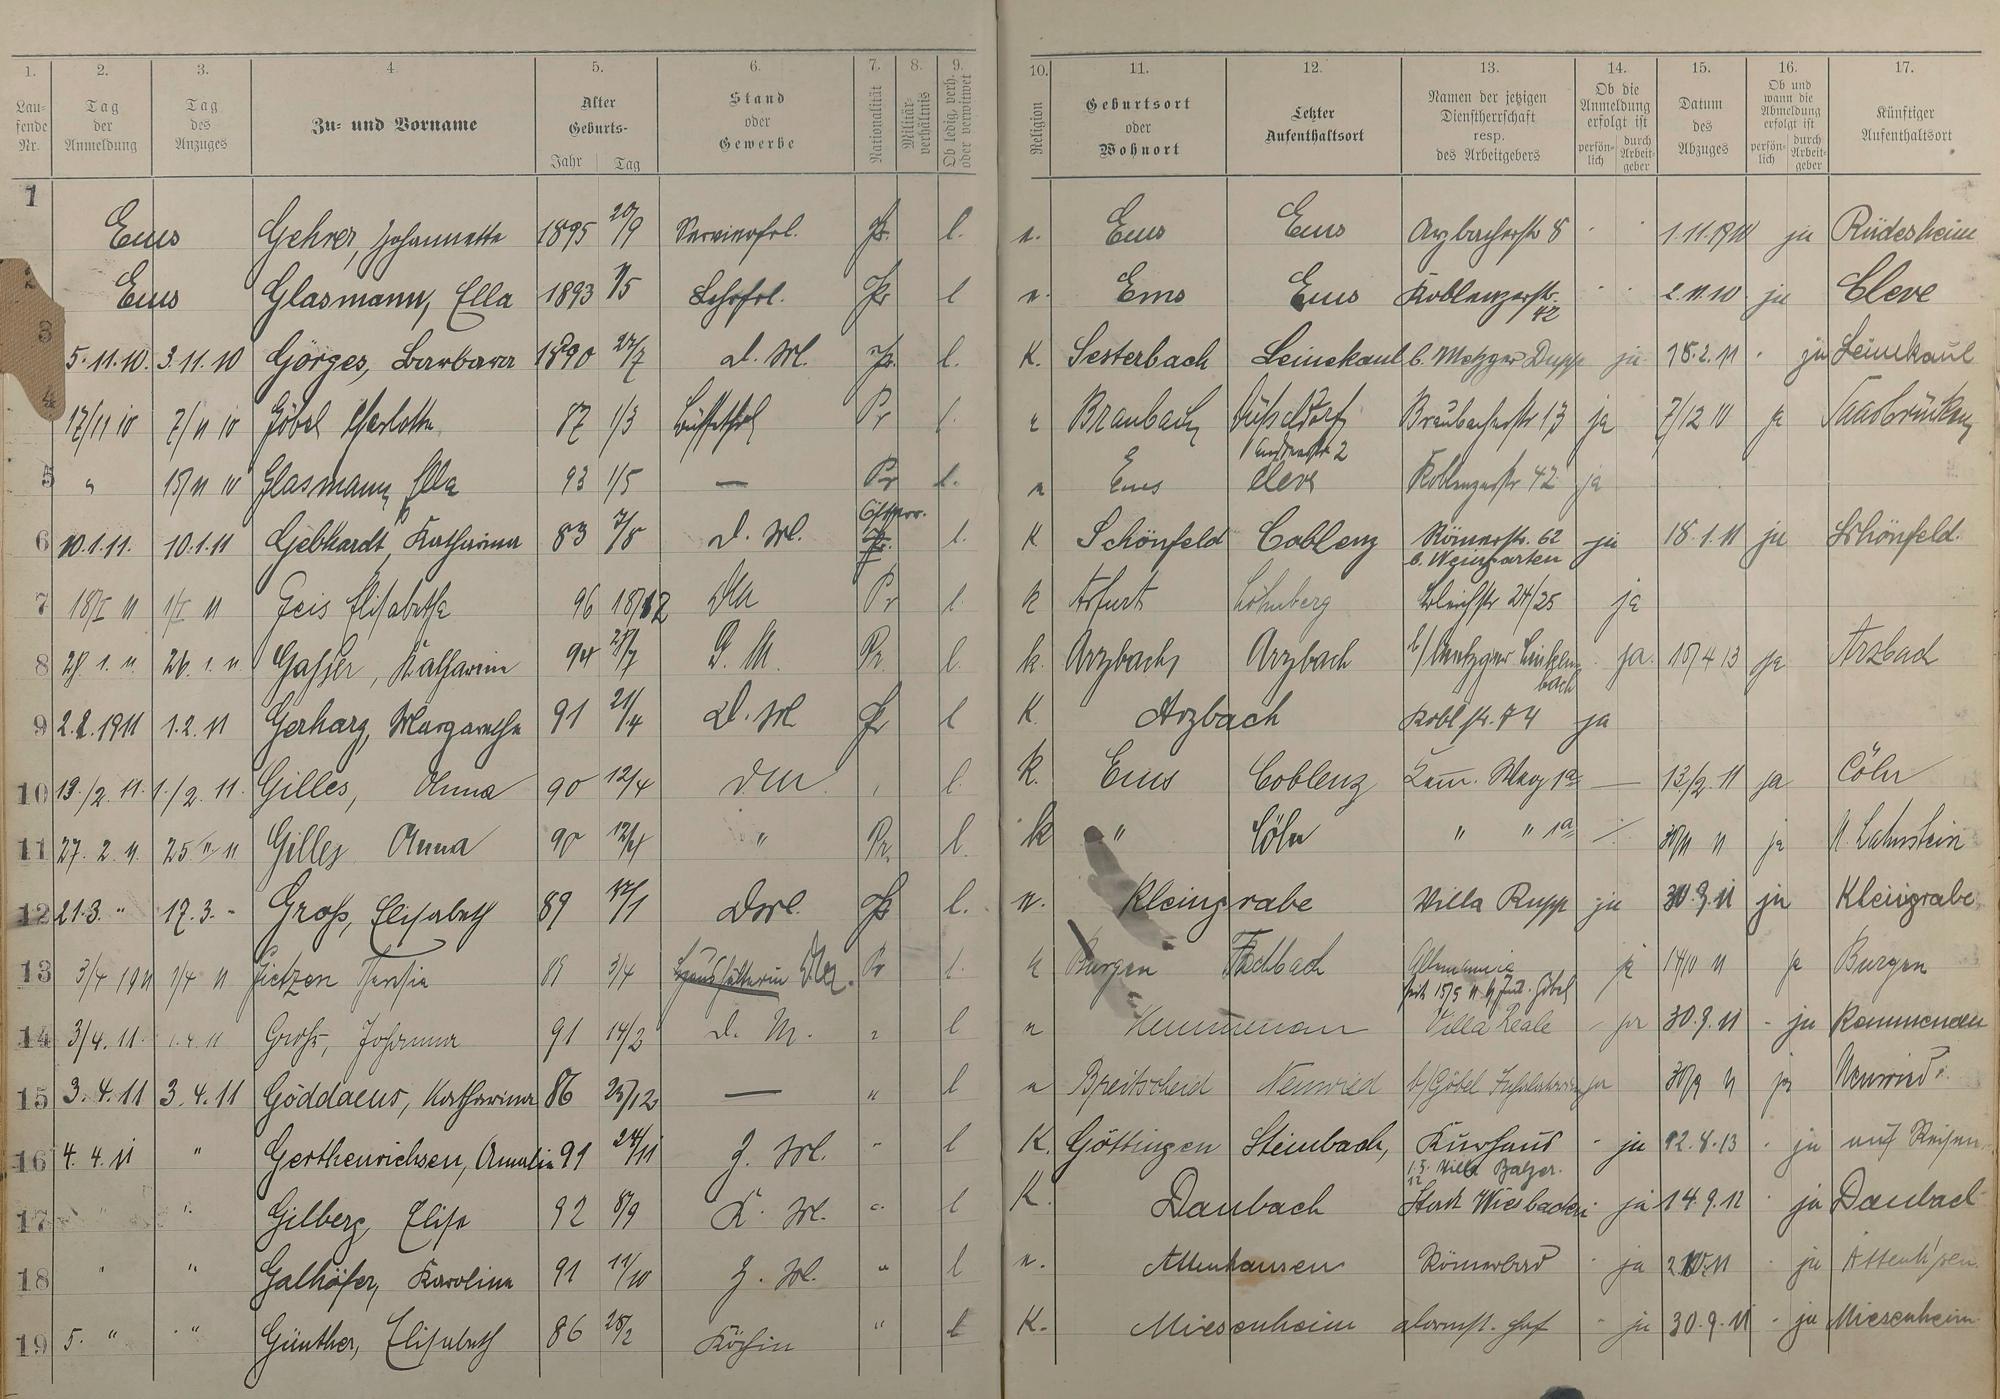 1. 2. 3. 4. 5. 6. 7. 8. 9. 10. 11. 12. 13. 14. 15. 16. 17.
Lau-fende Nr. Tag der Anmeldung Tag des Anzuges Zu- und Vorname Alter Geburts- Jahr Tag Stand oder Gewerbe Nationalität Militär-verhältnis Ob ledig, verh. oder verwitwet Religion Geburtsort oder Wohnort Letzter Aufenthaltsort Namen der jetzigen Dienstherrschaft resp. des Arbeitgebers Ob die Anmeldung erfolgt ist persön-lich durch Arbeit-geber Datum des Abzuges Ob und wann die Abmeldung erfolgt ist persön-lich durch Arbeit-geber Künftiger Aufenthaltsort
1 Ems Gehrer, Johannette 1895 20/9 Servierfrl. Pr. l. e. Ems Ems Arzbacherstr 8 1.11.1910 ja Rüdesheim
2 Ems Glasmann, Ella 1893 1/5 Lehrfrl. Pr l e. Ems Ems Koblenzerstr. 42 2.11.10 ja Cleve
3 5.11.10. 3.11.10 Görges, Barbara 1890 27/7 D. M. Pr. l. K. Sesterbach Leinekaul b. Metzger Dupp ja 18.2.11 ja Leinekaul
4 17/11 10 7/11 10 Göbel Charlotte 87 1/3 Büffetfrl Pr l. e Braubach Düsseldorf Braubacherstr 13 ja 7/12 10 ja Saarbrücken
5 " 15/11 10 Glasmann Ella 93 1/5 — Pr l. e Ems Cleve Koblenzerstr 42 ja
6 10.1.11. 10.1.11 Gebhardt, Katharina 83 7/8 D. M. l. K Schönfeld Coblenz Römerstr. 62 b. Weingarten ja 18.1.11 ja Schönfeld.
7 18/I 11 1/I 11 Geis Elisabetha 96 18/12 DM Pr l k Arfurt Löhnberg Bleichstr 24/25 ja
8 28.1.11 26.1.11 Gasser, Katharina 94 D. M. Pr. l. k. Arzbach Arzbach b/ Metzger ja 15/4 13 ja Arzbach
9 2.2.1911 1.2.11 Gerharz, Margarethe 91 21/4 D. M Pr l K. Arzbach Koblstr. 74 ja
10 13./2.11. 1./2.11. Gilles, Anna 90 12/4 DM l. k. Ems Coblenz Weg 1a — 13/2.11 ja Cöln
11 27.2.11. 25 II 11 Gilles Anna 90 12/4 " Pr. l. k " Cöln " " 1a 30/11 11 ja N. Lahnstein
12 21.3. " 17.3. - Groß, Elisabeth 89 17/1 Dml. Pr l. e. Kleingrabe Villa Rupp ja 30.9.11 ja Kleingrabe
13 3/4 1911 1/4 11 Gietzen Theresia 89 3/4 Haushälterin Pr l. k Burgen Fachbach Allemannia ja 14/10 11 ja Burgen
14 3/4.11. 1.4.11 Groß, Johanna 91 14/2 D. M. " l e Kemmenau Villa Reale ja 30.9.11 - ja Kemmenau
15 3.4.11 3.4.11 Göddaeus, Katharina 86 25/12 — " l e Breitscheid Neuwied b/ Göbel ja 30/9 11 ja Neuwied
16 4.4.11 " Gerthenrichsen, Amalie 91 24/11 Z. M. " l K. Göttingen Steinbach, Kurhaus ja 12.8.13 ja auf Reisen
17 " " Gilberg, Elise 92 8/9 K. M. " l K. Daubach Stadt Wiesbaden ja 14.9.12 ja Daubach
18 " " Galhöfer, Karoline 91 11/10 Z. M. " l e. Attenhausen Römerbad ja ja
19 5. " " Günther, Elisabeth 86 28/2 Köchin " l K. Miesenheim ja 30.9.11 ja Miesenheim